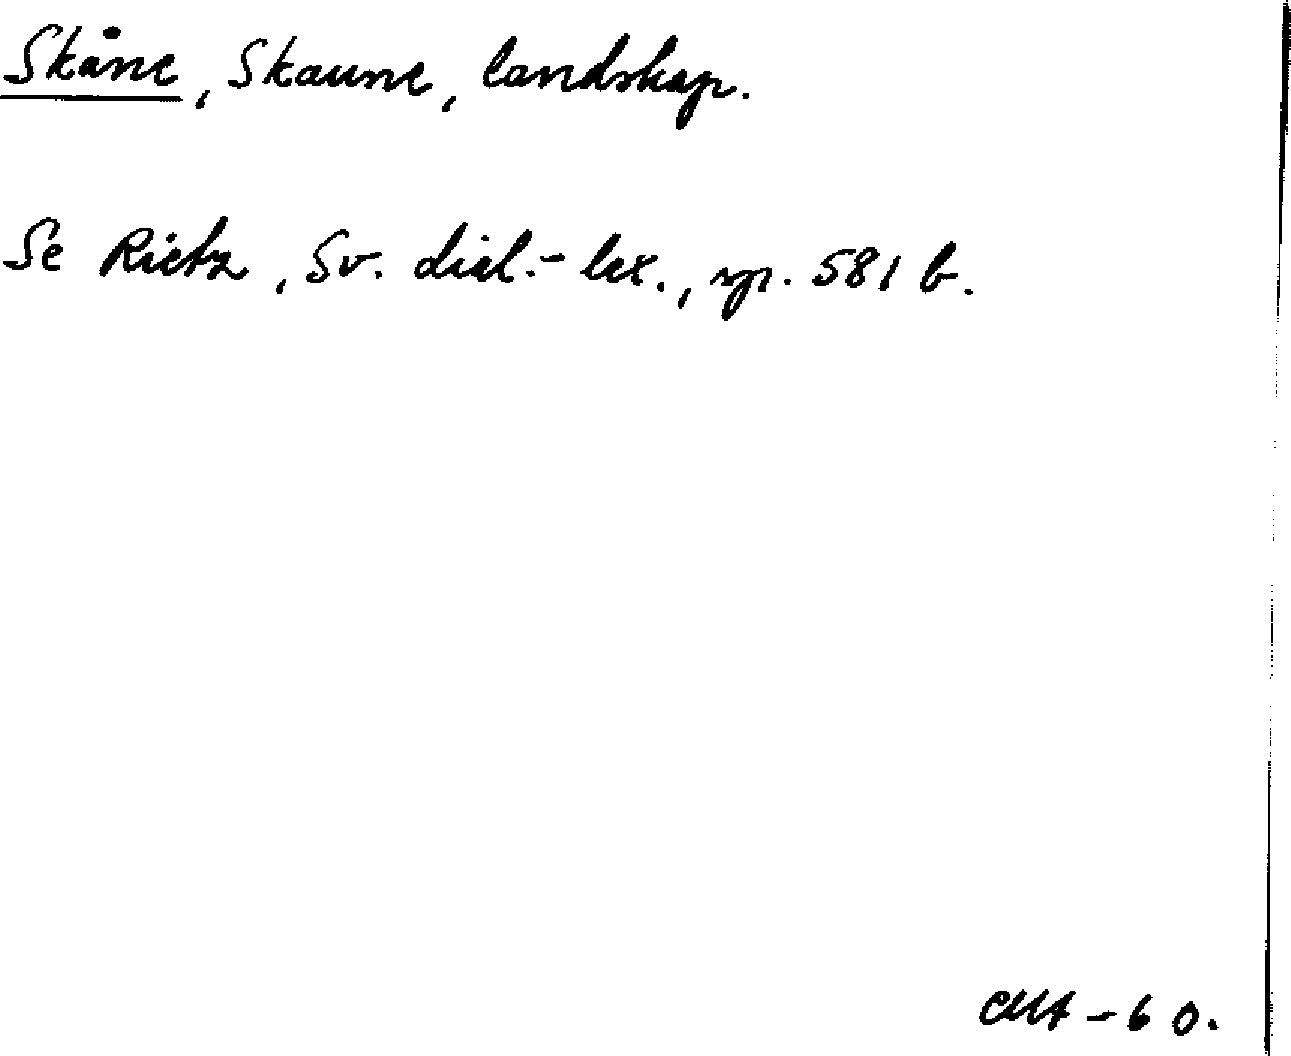 Skåne, Skaune, landskap.
Se Rietz, Sv. dial.-lex., sp. 581 b.
CMA - 60.